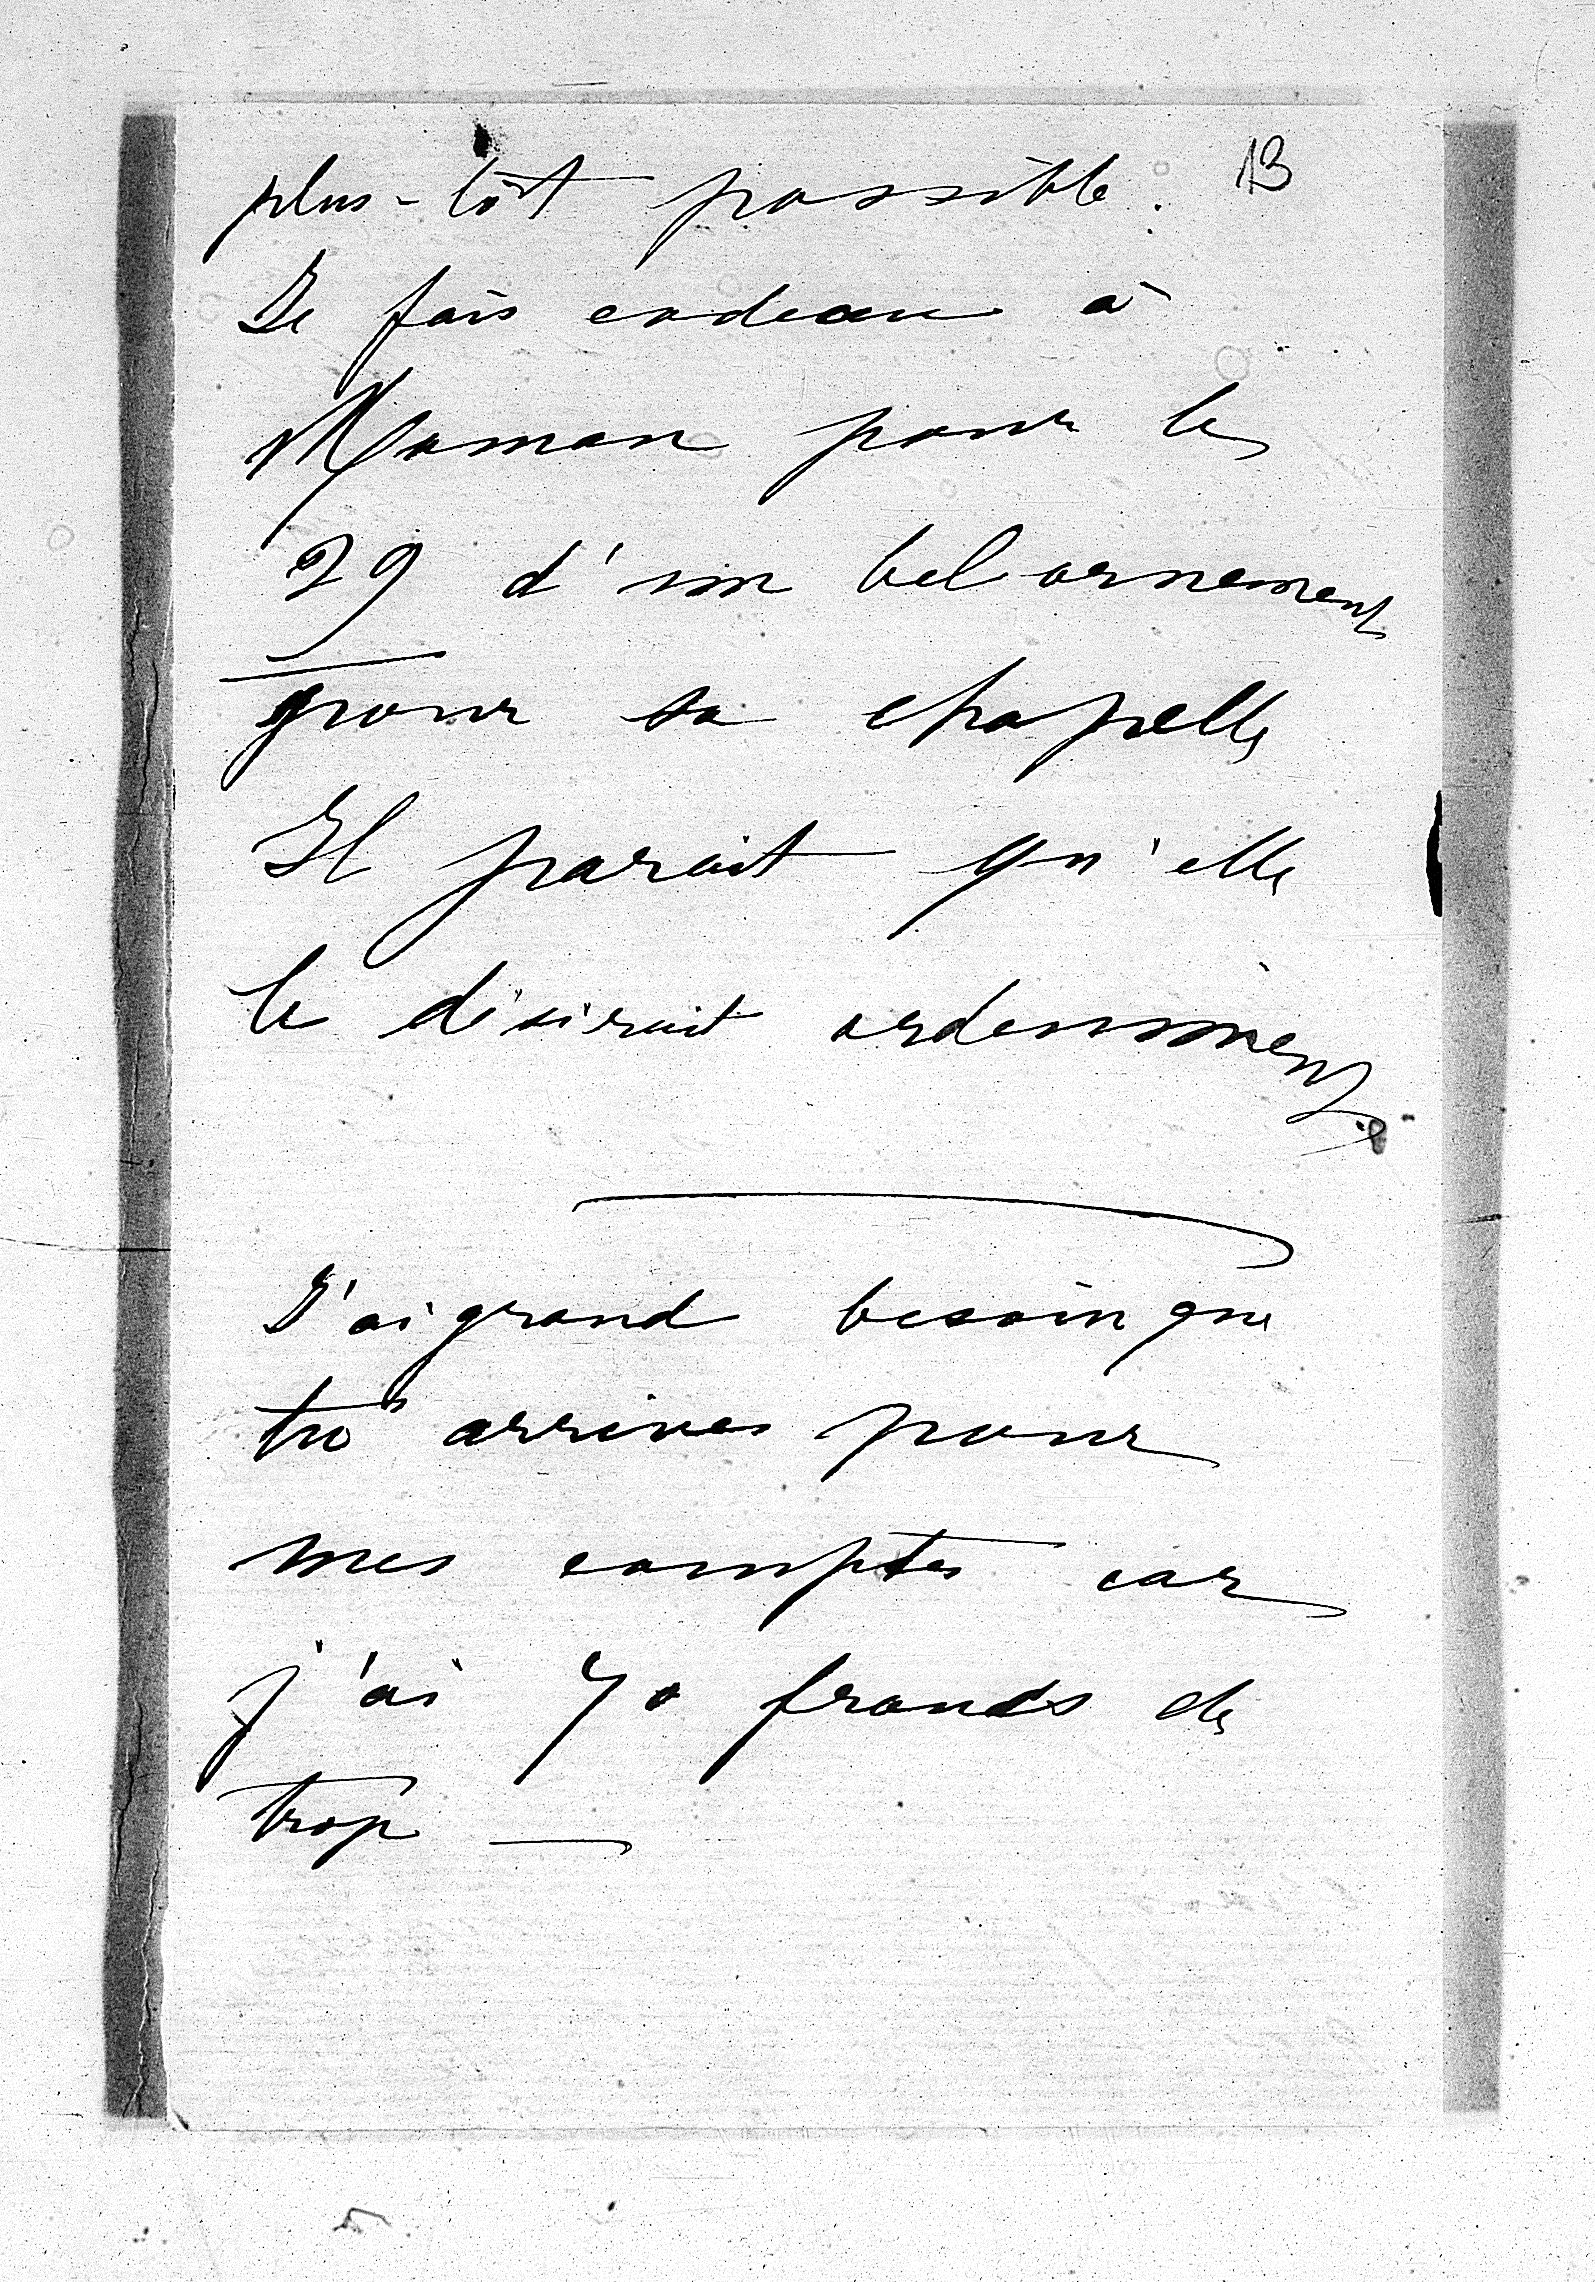 13
plus-tôt possible.
Je fais cadeau à
Maman pour le
29 d'un bel ornement
pour sa chapelle
Il parait qu'elle
le désirait ardemment.
J'ai grand besoin que
tu arrives pour
mes comptes car
j'ai 70 francs de
trop —